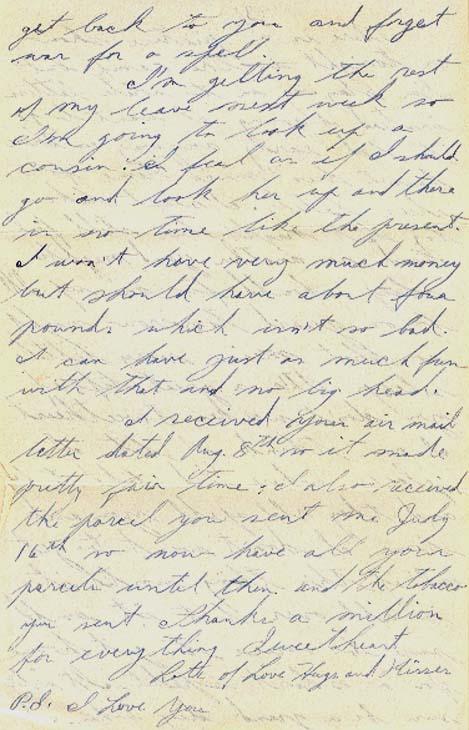 get back to you and forget
war for a spell.
I'm getting the rest
of my leave next week so
I'm going to look up a
cousin. I feal as if I should
go and look her up and there
is no time like the present.
I won't have very much money
but should have about four
pounds which isn't so bad.
I can have just as much fun
with that and no big head.
I received your air mail
letter dated Aug. 8th so it made
pretty fair time; I also received
the parcel you sent me July
16th so now have all your
parcels until then and the tobacco
you sent thanks a million
for everything Sweetheart
Lots of Love Hugs and Kisses
P.S. I Love You